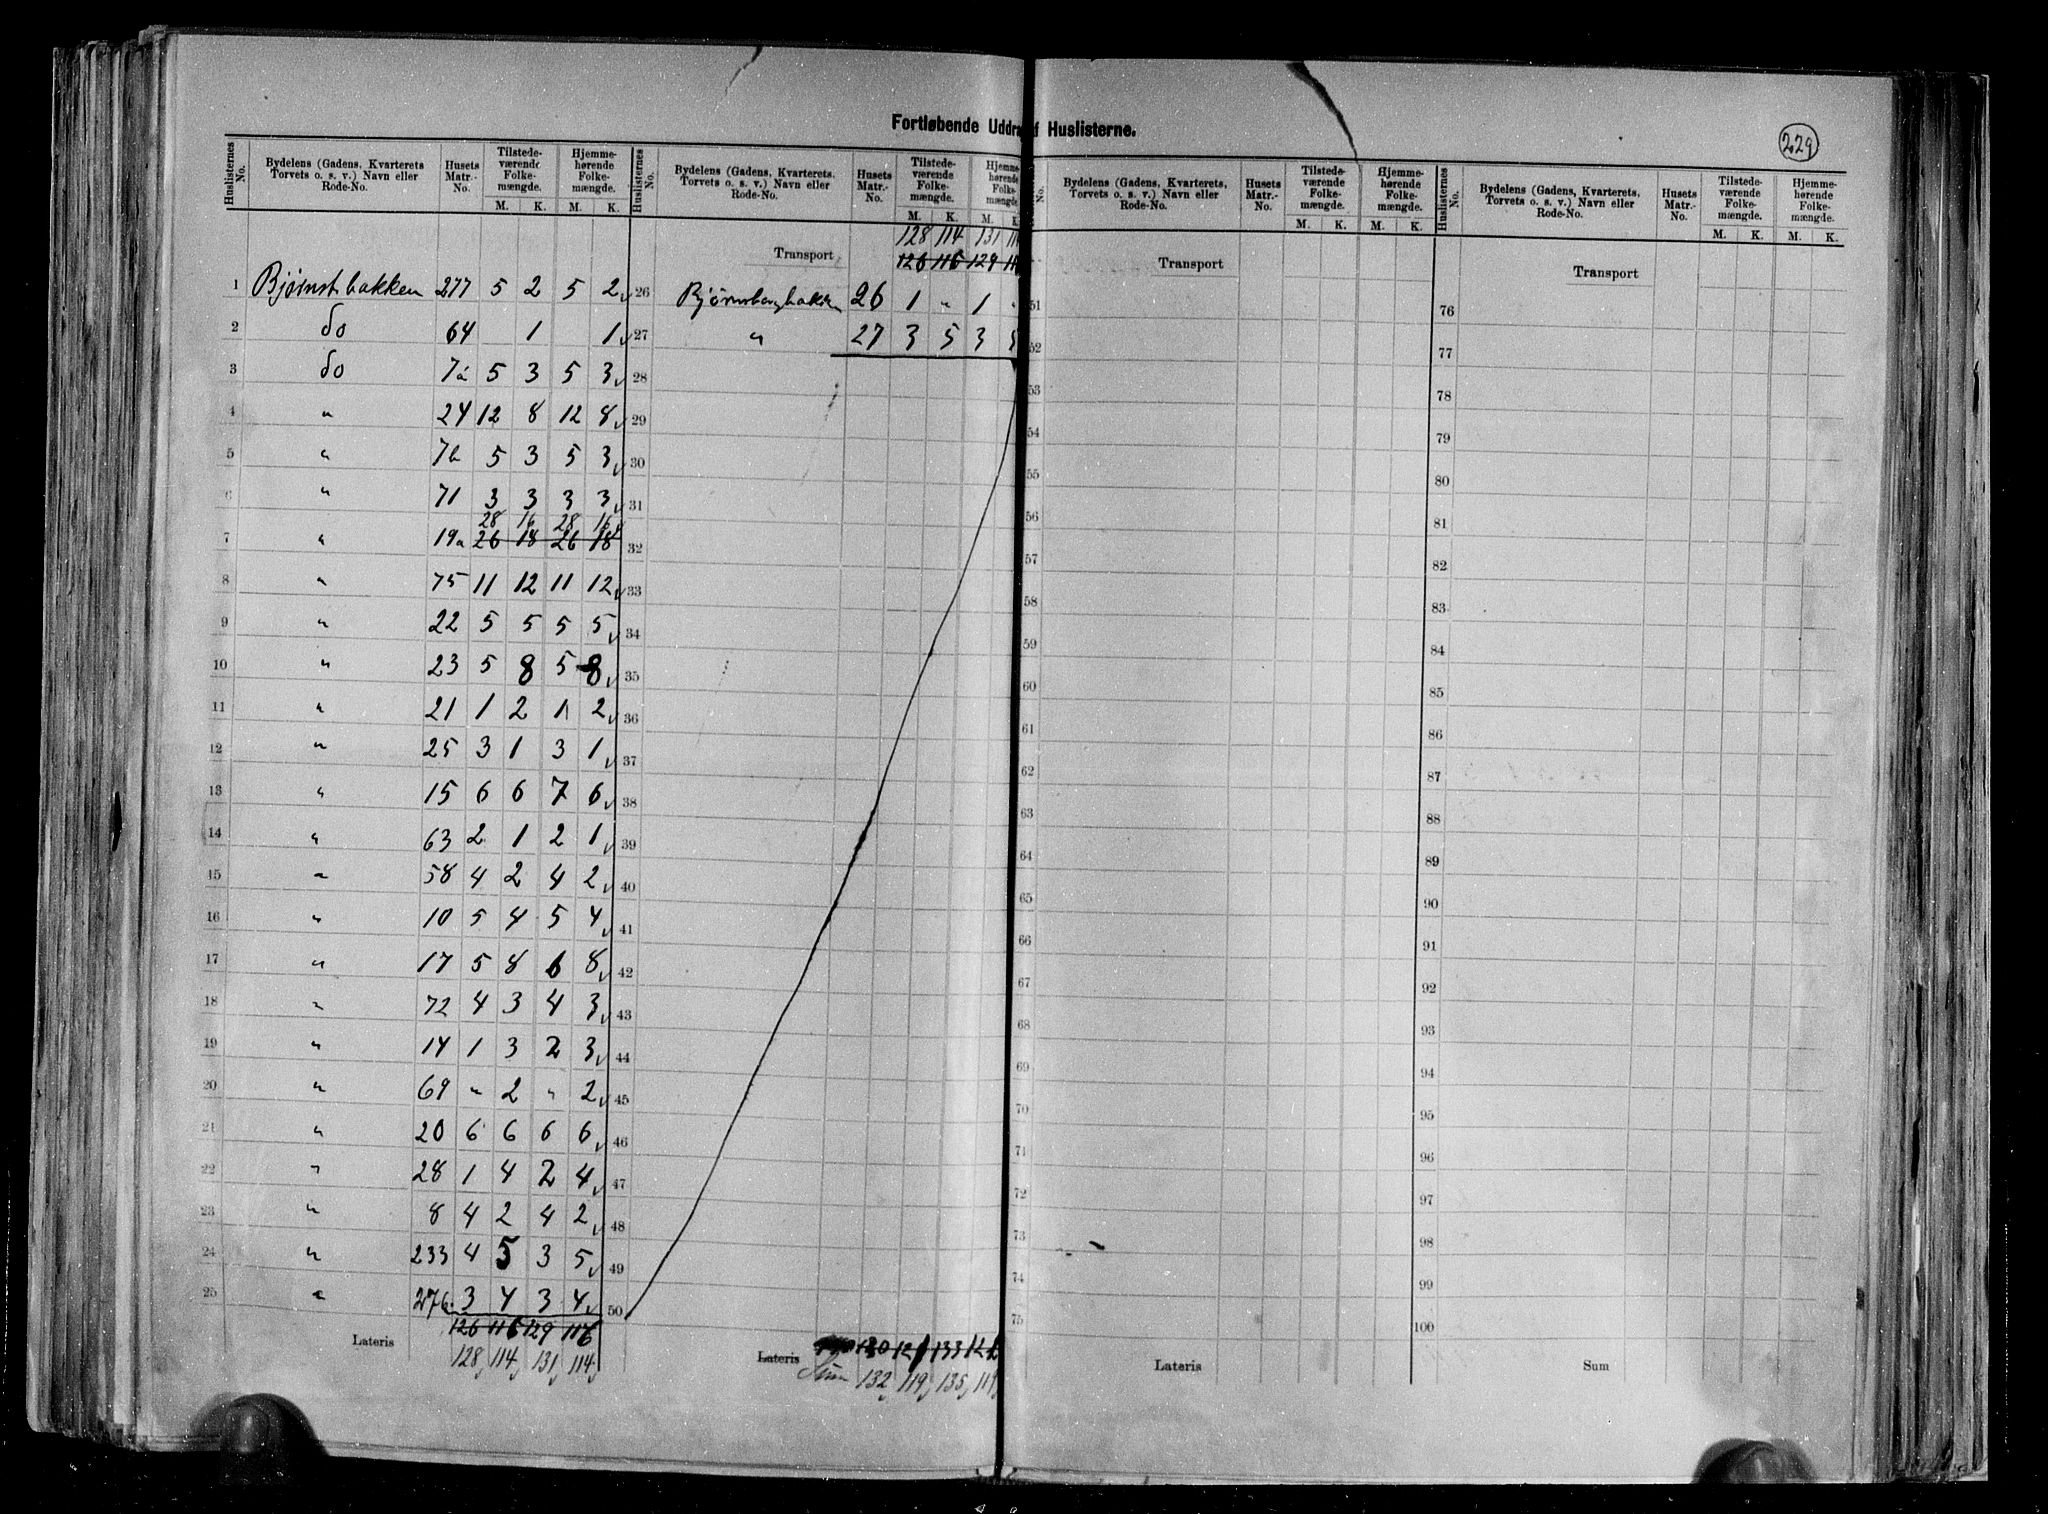 Fortløbende Uddrag af Huslisterne.
229
Huslisternes No. | Bydelens (Gadens, Kvarterets Torvets o. s. v.) Navn eller Rode-No. | Husets Matr.-No. | Tilstede-værende Folke-mængde. M. K. | Hjemme-hørende Folke-mængde. M. K.
1 Bjørnstbakken 277 5 2 5 2
2 do 64 1 1
3 do 7a 5 3 5 3
4 " 24 12 8 12 8
5 " 7b 5 3 5 3
6 " 71 3 3 3 3
28 16 28 16
7 " 19a 26 18 26 18
8 " 75 11 12 11 12
9 " 22 5 5 5 5
10 " 23 5 8 5 8
11 " 21 1 2 1 2
12 " 25 3 1 3 1
13 " 15 6 6 7 6
14 " 63 2 1 2 1
15 " 58 4 2 4 2
16 " 10 5 4 5 4
17 " 17 5 8 6 8
18 " 72 4 3 4 3
19 " 14 1 3 2 3
20 " 69 " 2 " 2
21 " 20 6 6 6 6
22 " 28 1 4 2 4
23 " 8 4 2 4 2
24 " 233 4 5 3 5
25 " 276 3 4 3 4
Lateris 126 116 129 116
128 114 131 114
Huslisternes No. | Bydelens (Gadens, Kvarterets, Torvets o. s. v.) Navn eller Rode-No. | Husets Matr.-No. | Tilstede-værende Folke-mængde. M. K. | Hjemme-hørende Folke-mængde. M. K.
128 114 131
Transport 126 116 129
26 Bjørnsborgbakken 26 1 " 1 "
27 " 27 3 5 3 5
28
29
30
31
32
33
34
35
36
37
38
39
40
41
42
43
44
45
46
47
48
49
50
Lateris 130 121 133 121
Sum 132 119 135 119
No. | Bydelens (Gadens, Kvarterets, Torvets o. s. v.) Navn eller Rode-No. | Husets Matr.-No. | Tilstede-værende Folke-mængde. M. K. | Hjemme-hørende Folke-mængde. M. K.
Transport
51
52
53
54
55
56
57
58
59
60
61
62
63
64
65
66
67
68
69
70
71
72
73
74
75
Lateris
Huslisternes No. | Bydelens (Gadens, Kvarterets, Torvets o. s. v.) Navn eller Rode-No. | Husets Matr.-No. | Tilstede-værende Folke-mængde. M. K. | Hjemme-hørende Folke-mængde. M. K.
Transport
76
77
78
79
80
81
82
83
84
85
86
87
88
89
90
91
92
93
94
95
96
97
98
99
100
Sum